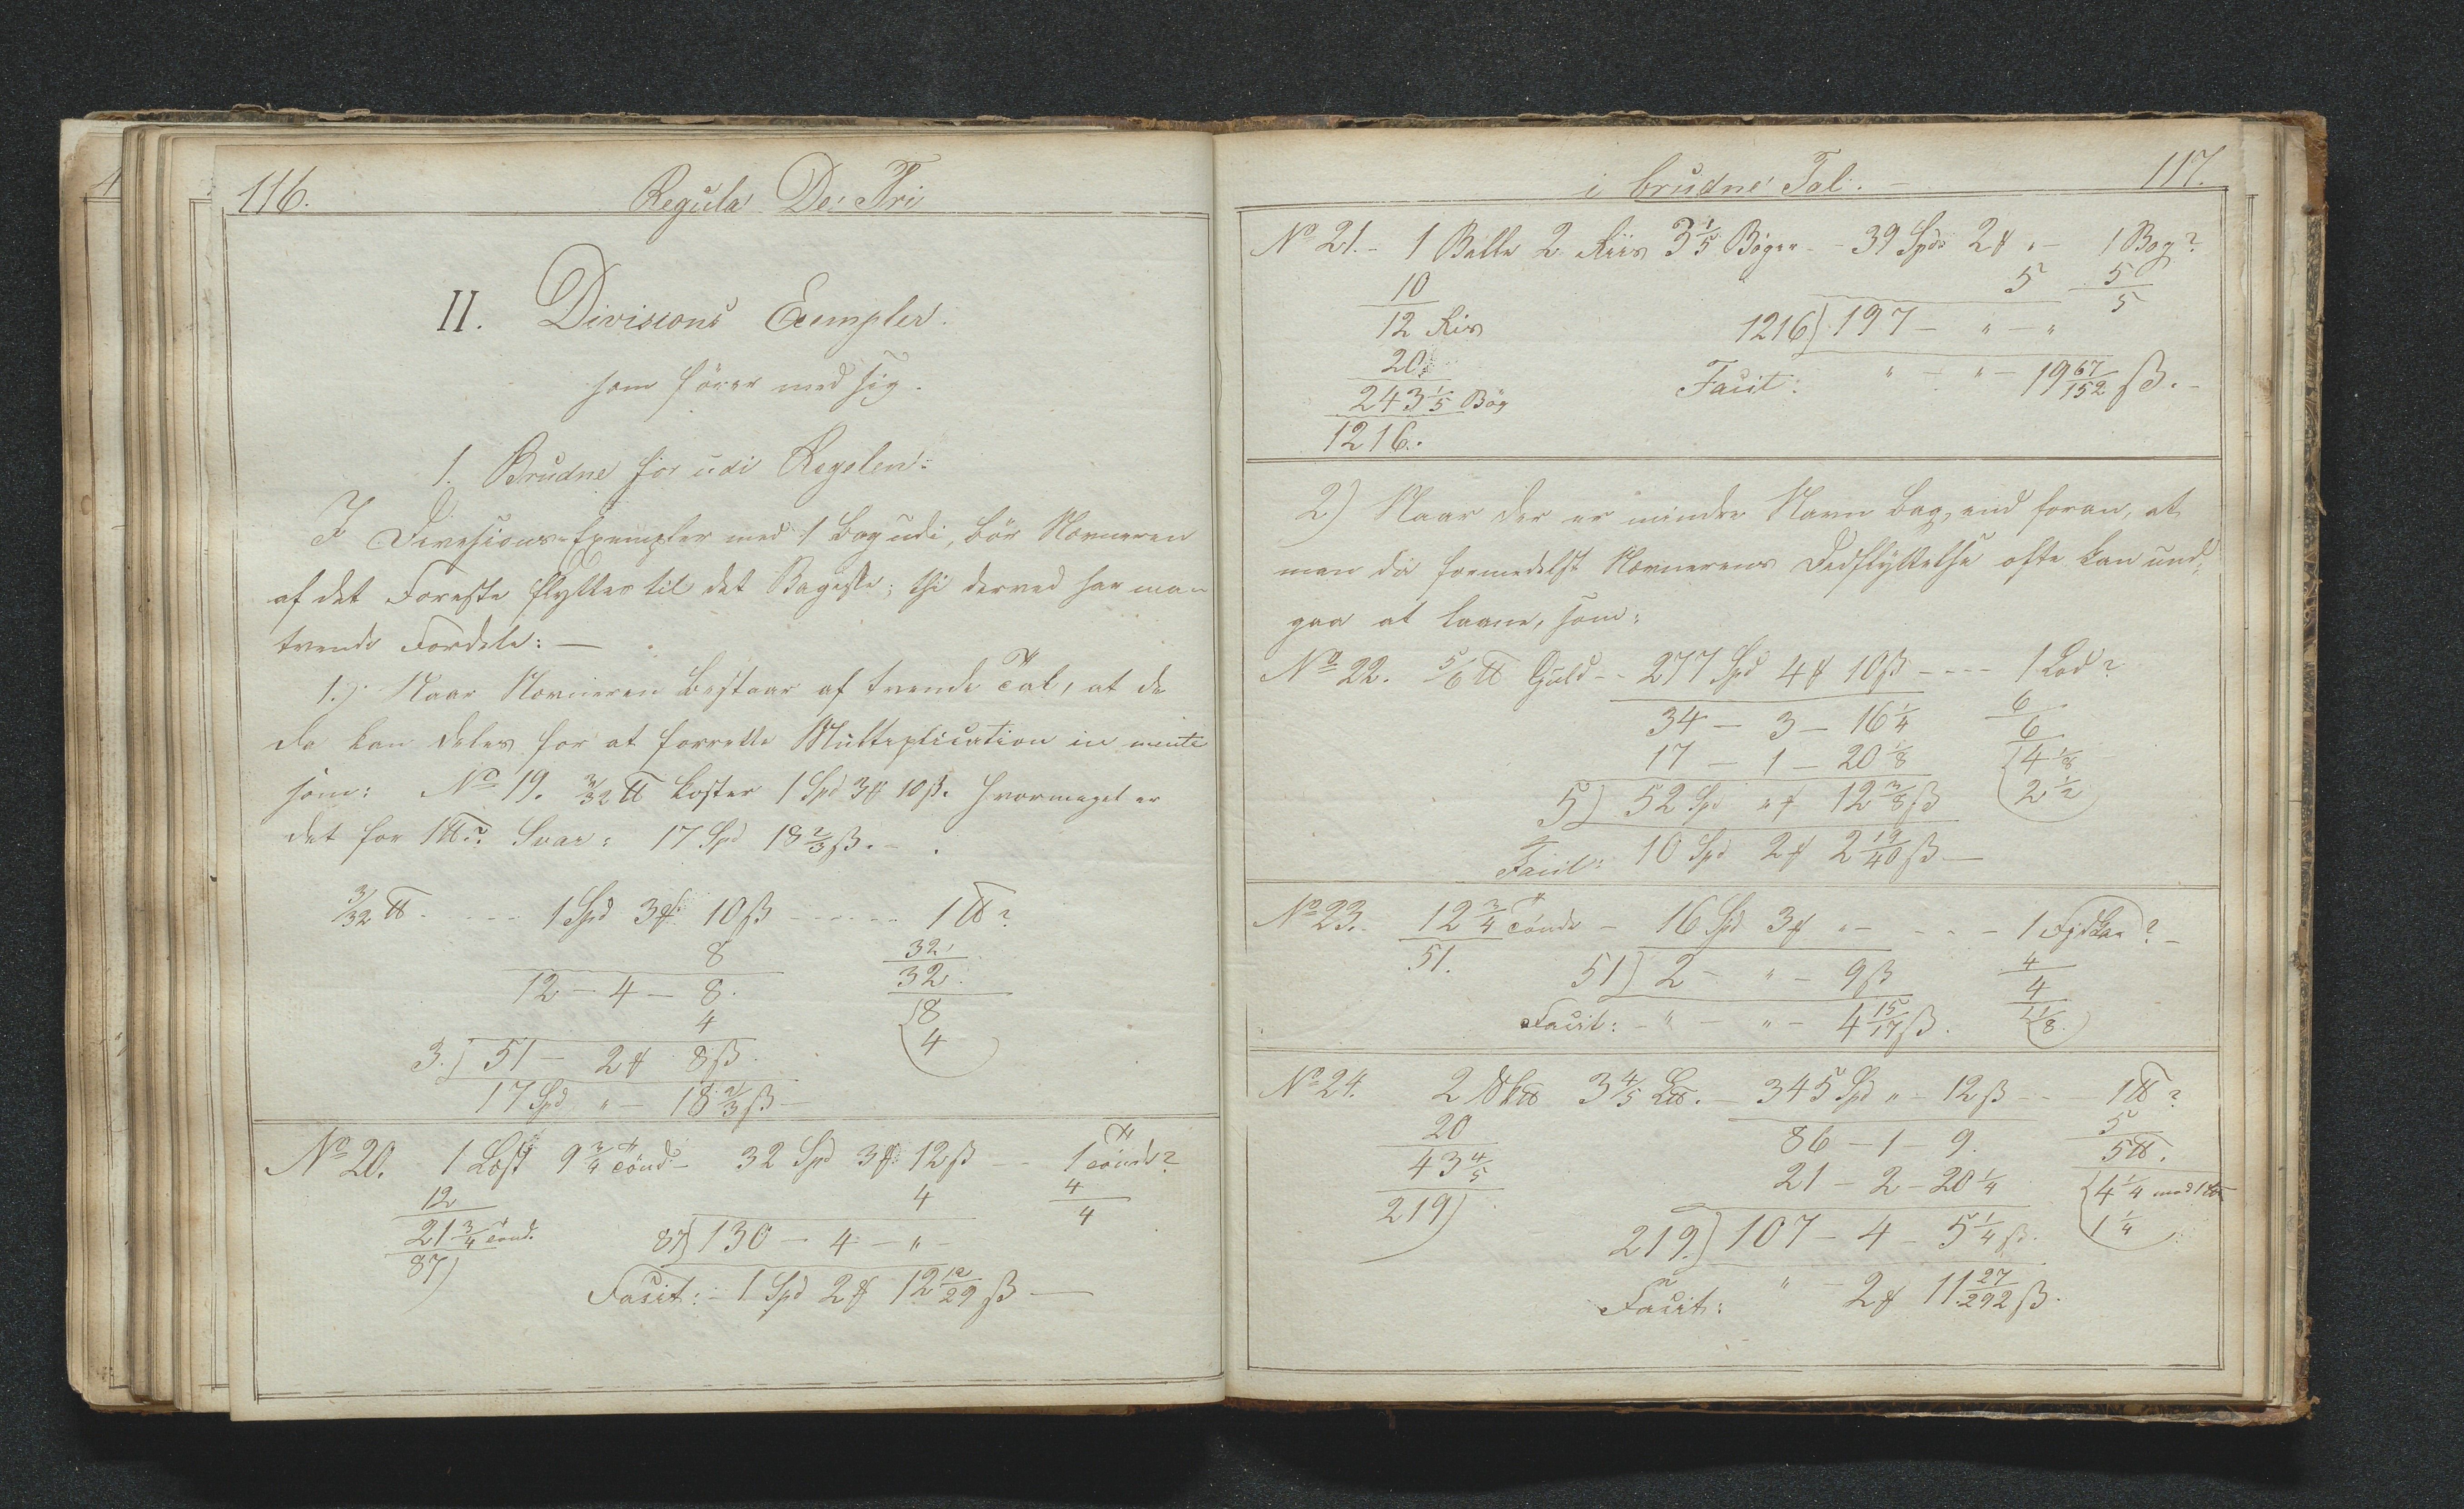 116.
Regula De Tri
II. Divisions Exempler.
som fører med sig.
1. Brudne for udi Regelen.
I Divisions-Exempler med 1 bag udi, bør Nævneren
af det Forreste flyttes til det Bageste; thi derved har man
tvende Fordele: —
1.) Naar Nævneren bestaar af tvende Tal, at de
da kan deles for at forrette Multiplication in mente
som: No 19. 3/32 ℔ koster 1 Spd 3 ƒ 10 ß. hvormeget er
det for 1 ℔.? Svar: 17 Spd 18 2/3 ß. - .
3/32 ℔. - - - 1 Spd 3 ƒ 10 ß - - - - - - 1 ℔?
8 32
12 — 4 — 8. 32.
4 8
3.) 51 — 2 ƒ 8 ß. 4
17 Spd " — 18 2/3 ß —
No 20. 1 Læst 9 3/4 Tönd. - 32 Spd 3 ƒ 12 ß - - 1 Tönde?
12 4 4
21 3/4 Tönd. 87) 130 — 4 — " — 4
87)
Facit: - 1 Spd 2 ƒ 12 12/29 ß —
i brudne Tal. —
117.
No 21. - 1 Balle 2 Riis 3 1/5 Bøger - - 39 Spd 2 ƒ " - 1 Bog?
10 5 5
12 Riis 1216) 197 — " — " 5
20
243 1/5 Bøg Facit: " — " — 19 67/152 ß. -
1216.
2) Naar der er mindre Navn bag, end foran, at
man da formedelst Nævnerens Dedflyttelse ofte kan und-
gaa at laane, som:
No 22. 5/6 ℔ Guld - - 277 Spd 4 ƒ 10 ß - - - 1 Lod?
34 — 3 — 16 1/4 6
17 — 1 — 20 1/8 6
5) 52 Spd " ƒ 12 3/8 ß 4 1/8
2 1/2
Facit: 10 Spd 2 ƒ 2 19/40 ß —
No 23. 12 3/4 Tönde - 16 Spd 3 ƒ " - - - - 1 Fjdkar? -
51. 51) 2 — " — 9 ß 4
4
Facit: - " — " — 4 15/17 ß. 1/8
No 24. 2 Sk℔ 3 4/5 L℔. - 345 Spd " - 12 ß - - 1 ℔?
20 86 — 1 — 9. 5
43 4/5 21 — 2 — 20 1/4 5 ℔.
219) 4 1/4 med 1 L℔
219.) 107 — 4 — 5 1/4 ß. 1 1/4
Facit: " — 2 ƒ 11 27/292 ß.